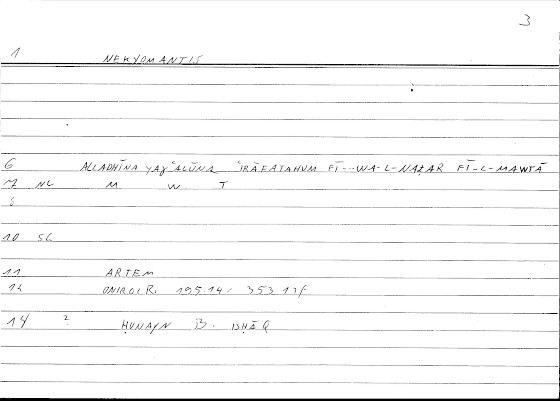 3
1 NEKYOMANTIS
6 ALLADHĪNA YAǦʿALŪNA ʿIRĀFATAHUM FĪ---WA-L-NAẒAR FĪ-L-MAWTĀ
7 NL M W T
8
10 SL
11 ARTEM
12 ONIROCR. 195.14/ 353.13f
14 ? ḤUNAYN B. ISḤĀQ